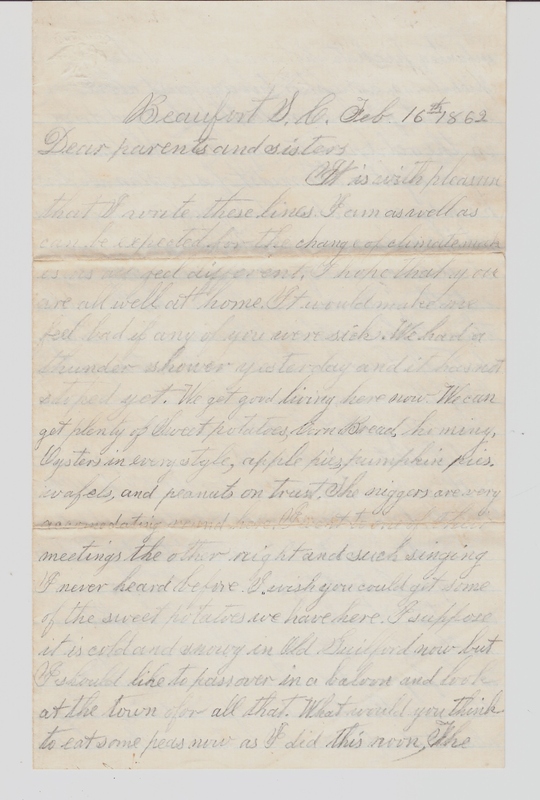 Beaufort S. C. Feb. 16th 1862
Dear parents and sisters
It is with pleasure
that I wrote these lines. I am as well as
can be expected for the change of climate
different. I hope that you
are all well at home. It would make me
feel bad if any of you were sick. We had a
thunder shower yesterday and it has not
stoped yet. We get good living here now. We can
get plenty of Sweet potatoes, Corn Bread, hominy,
Oysters in every style, apple pies, pumpkin pies,
wafels, and peanuts on trust. The niggers are very
accomodating
meetings the other night and such singing
I never heard before. I wish you could get some
of the sweet potatoes we have here. I suppose
it is cold and snowy in Old Guilford now but
I should like to pass over in a baloon and look
at the town for all that. What would you think
to eat some peas now as I did this noon, The